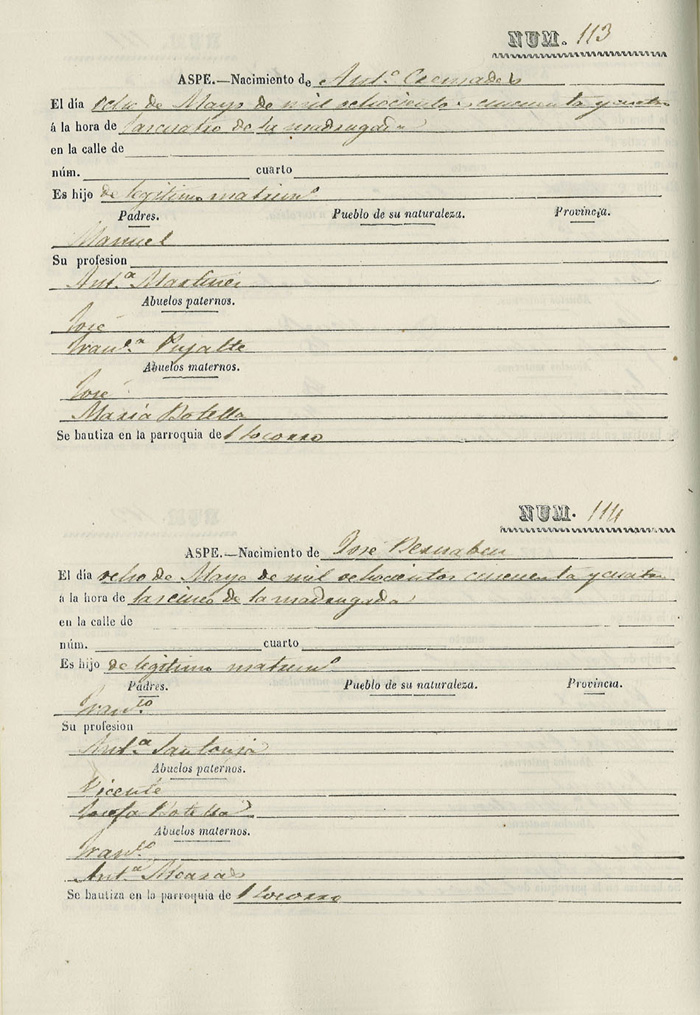 NUM. 113
ASPE.—Nacimiento de Antº Cremades
El día ocho de Mayo de mil ochocientos cincuenta y cuatro
á la hora de las cuatro de la madrugada
en la calle de
núm. cuarto
Es hijo de legitimo matrimº
Padres. Pueblo de su naturaleza. Provincia.
Manuel
Su profesion
Antª Martinez
Abuelos paternos.
José
Franca Pujalte
Abuelos maternos.
José
Maria Botella
Se bautiza en la parroquia de l Socorro
NUM. 114
ASPE.—Nacimiento de José Bernabeu
El día ocho de Mayo de mil ochocientos cincuenta y cuatro
á la hora de las cinco de la madrugada
en la calle de
núm. cuarto
Es hijo de legitimo matrimº
Padres. Pueblo de su naturaleza. Provincia.
Franco
Su profesion
Antª Santonja
Abuelos paternos.
Vicente
Josefa Botella
Abuelos maternos.
Franco
Antª
Se bautiza en la parroquia de l Socorro